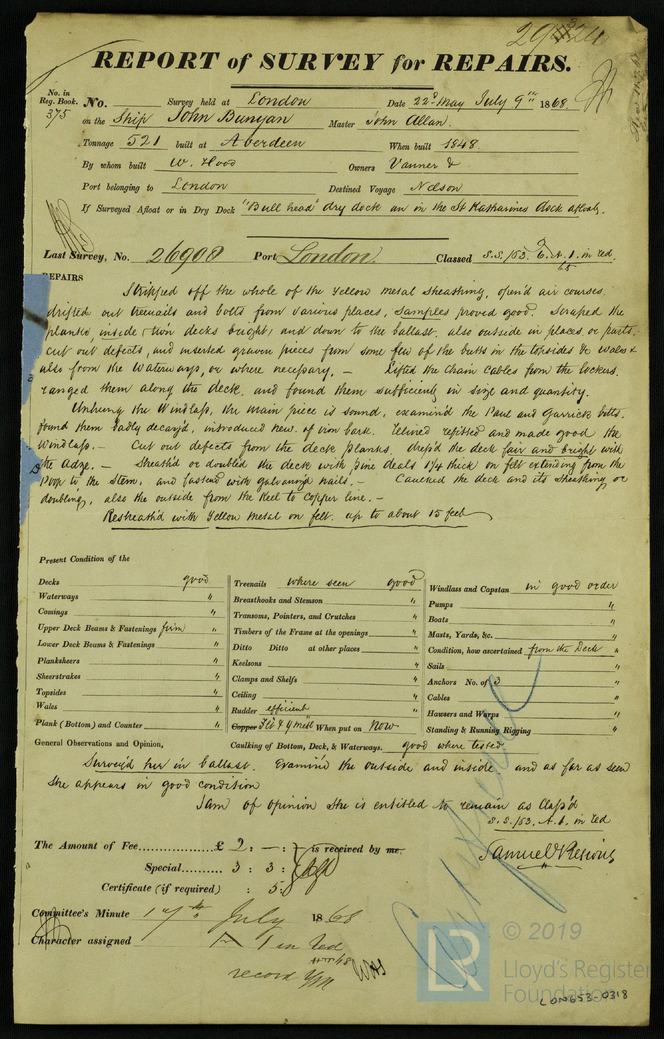 REPORT of SURVEY for REPAIRS.
No. in Reg. Book. No. Survey held at London Date 22d May July 9th 1868
375 on the Ship John Bunyan Master John Allan.
Tonnage 521 built at Aberdeen When built 1848.
By whom built W. Hood Owners Vanner &
Port belonging to London Destined Voyage Nelson
If Surveyed Afloat or in Dry Dock "Bull head" dry dock an in the St Katharines dock afloat.
Last Survey, No. 26908 Port London Classed S.S./63. A.1. in red
REPAIRS
Stripped off the whole of the Yellow metal sheathing, open'd air courses.
drifted out treenails and bolts from various places, samples proved good. Scraped the
planking, inside (twin decks bright) and down to the ballast. also outside in places or parts.
Cut out defects, and inserted graven pieces from some few of the butts in the topsides & wales &
also from the Waterways, or where necessary. — Lifted the chain cables from the lockers.
ranged them along the deck. and found them sufficient in size and quantity.
Unhung the Windlass, the main piece is sound, examin'd the Paul and Garrick bitts.
found them badly decay'd, introduced new of iron bark. relined refitted and made good the
Windlass. — Cut out defects from the deck planks. dress'd the deck fair and bright with
the Adze. — Sheath'd or doubled the deck with pine deals 1 1/4 thick on felt extending from the
Poop to the Stem, and fastened with galvanized nails. — Caulked the deck and its sheathing or
doubling, also the outside from the keel to copper line. —
Resheath'd with Yellow metal on felt. up to about 15 feet
Present Condition of the
Decks good
Waterways "
Comings "
Upper Deck Beams & Fastenings firm "
Lower Deck Beams & Fastenings "
Planksheers "
Sheerstrakes "
Topsides "
Wales "
Plank (Bottom) and Counter "
Treenails where seen good
Breasthooks and Stemson "
Transoms, Pointers, and Crutches "
Timbers of the Frame at the openings "
Ditto Ditto at other places "
Keelsons "
Clamps and Shelfs "
Ceiling "
Rudder efficient
Copper Felt & Y metl When put on Now
Caulking of Bottom, Deck, & Waterways. good where tested
Windlass and Capstan in good order
Pumps "
Boats "
Masts, Yards, &c. "
Condition, how ascertained from the Deck "
Sails "
Anchors No. of 3 "
Cables "
Hawsers and Warps "
Standing & Running Rigging "
General Observations and Opinion,
Survey'd her in ballast. Examin'd the outside and inside and as far as seen
she appears in good condition
I am of opinion she is entitled to remain as Class'd
S.S./63. A.1. in red
The Amount of Fee £ 2 : — : — is received by me.
Special 3 : 3 :
Certificate (if required) : 5
Committee's Minute 17th July 1868
Character assigned 1 in red
record YM
© 2019
LR
Lloyd's Register
Foundation
LON653-0318